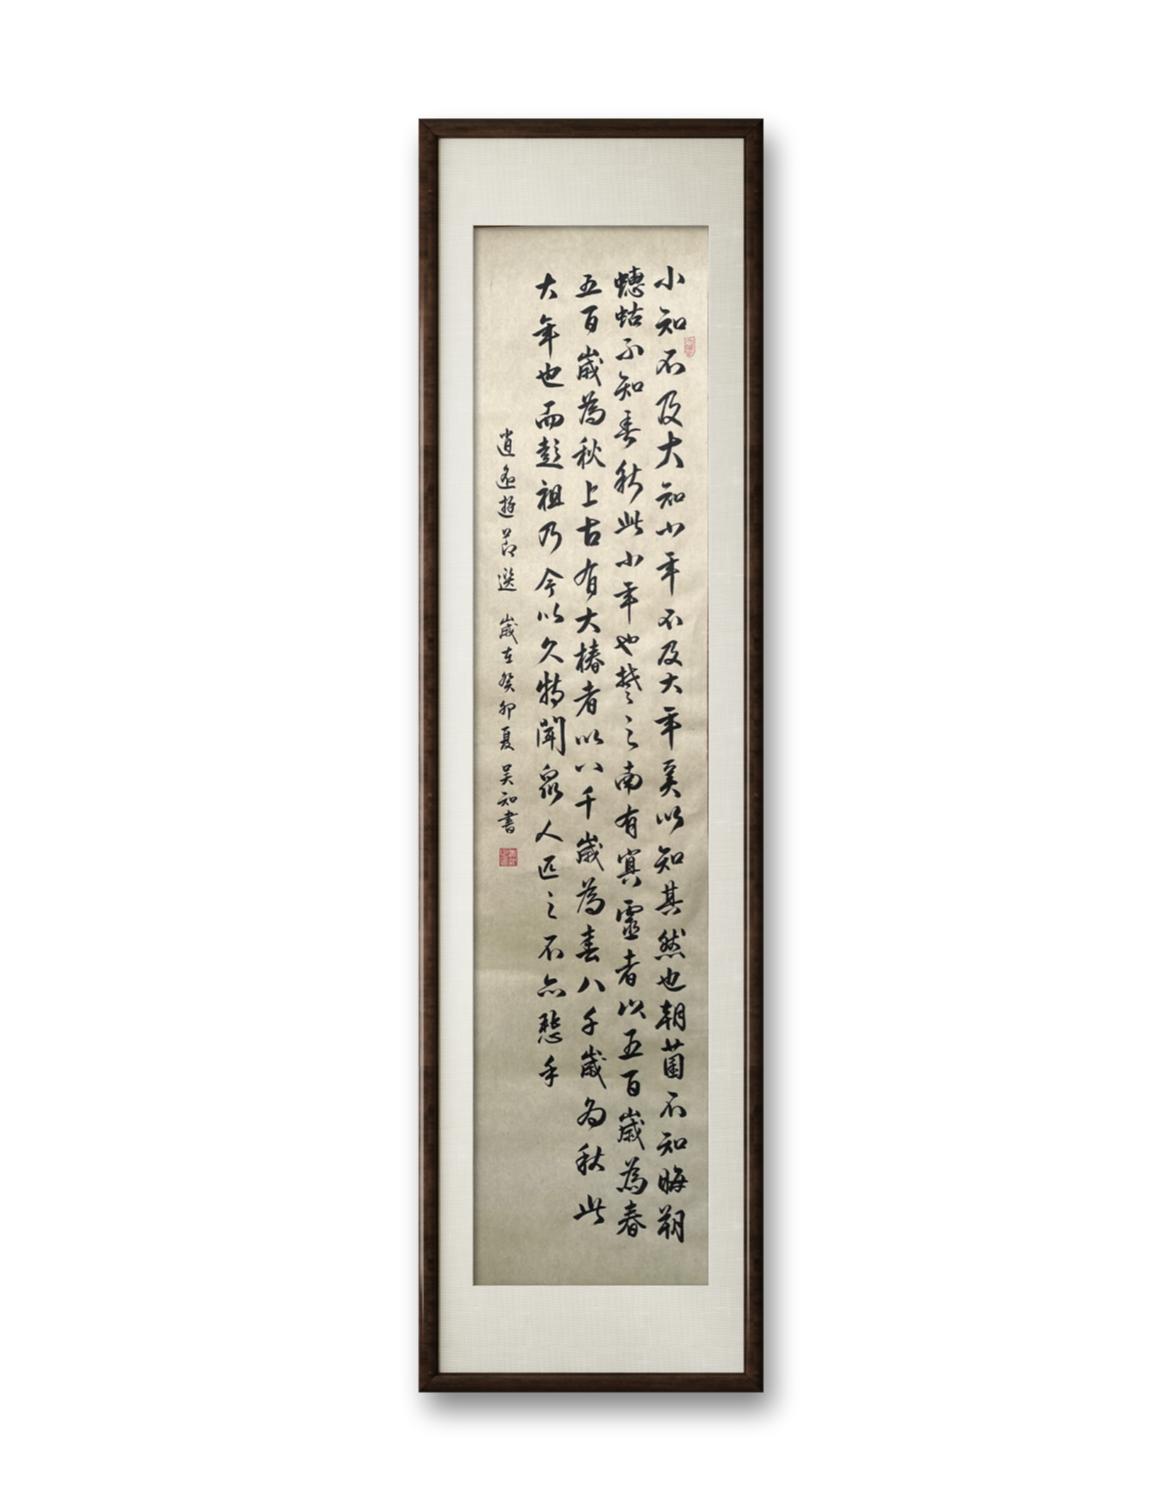 小知不及大知小年不及大年奚以知其然也朝菌不知晦朔
蟪蛄不知春秋此小年也楚之南有冥靈者以五百歲為春
五百歲為秋上古有大椿者以八千歲為春八千歲為秋此
大年也而彭祖乃今以久特聞衆人匹之不亦悲乎
逍遙遊節選 歲在癸卯夏 吴知書